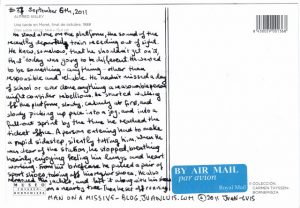 #37 September 6th, 2011
ALFRED SISLEY
Una tarde en Moret, final de octubre, 1888
He stood alone on the platform, the sound of the
recently departed train receding out of sight.
He knew, somehow, that he shouldn't get on it,
that today was going to be different. He wanted
to be something - anything - other than
responsible and reliable. He hadn't missed a day
of school or ever done anything a reasonable person
might consider rebellious. He started walking
off the platform slowly, calmly at first, and
slowly picking up pace into a jog, and into a
full-out sprint by the time he reached the
ticket office. A person entering had to make
a rapid sidestep, silently letting him, when he
was clear of the station, he stopped, breathing
heavily, enjoying feeling his lungs and heart
working. From his briefcase he pulled a pair of
sport shoes, taking off his
shoes, and left it
on a nearby tree. Then he set off
MUSEO
THYSSEN-
BORNEMISZA
BY AIR MAIL
par avion
Royal Mail
COLECCIÓN
CARMEN THYSSEN-
BORNEMISZA
MAN ON A MISSIVE - BLOG.JUANLUIS.COM ©2011 JUAN-LUIS